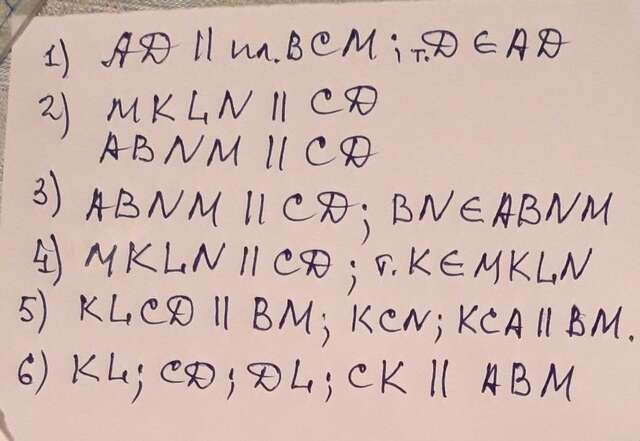 1) AD || пл. BCM; т. D ∈ AD
2) MKLN || CD
ABNM || CD
3) ABNM || CD; BN ∈ ABNM
4) MKLN || CD; т. K ∈ MKLN
5) KLCD || BM; KCN; KCA || BM.
6) KL; CD; DL; CK || ABM